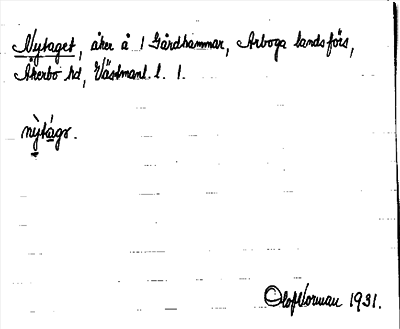 Nytaget, åker å 1 Gårdhammar, Arboga landsförs,
Åkerbo hd, Västmanl. l. 1.
nỳtágr.
Olof Norman 1931.